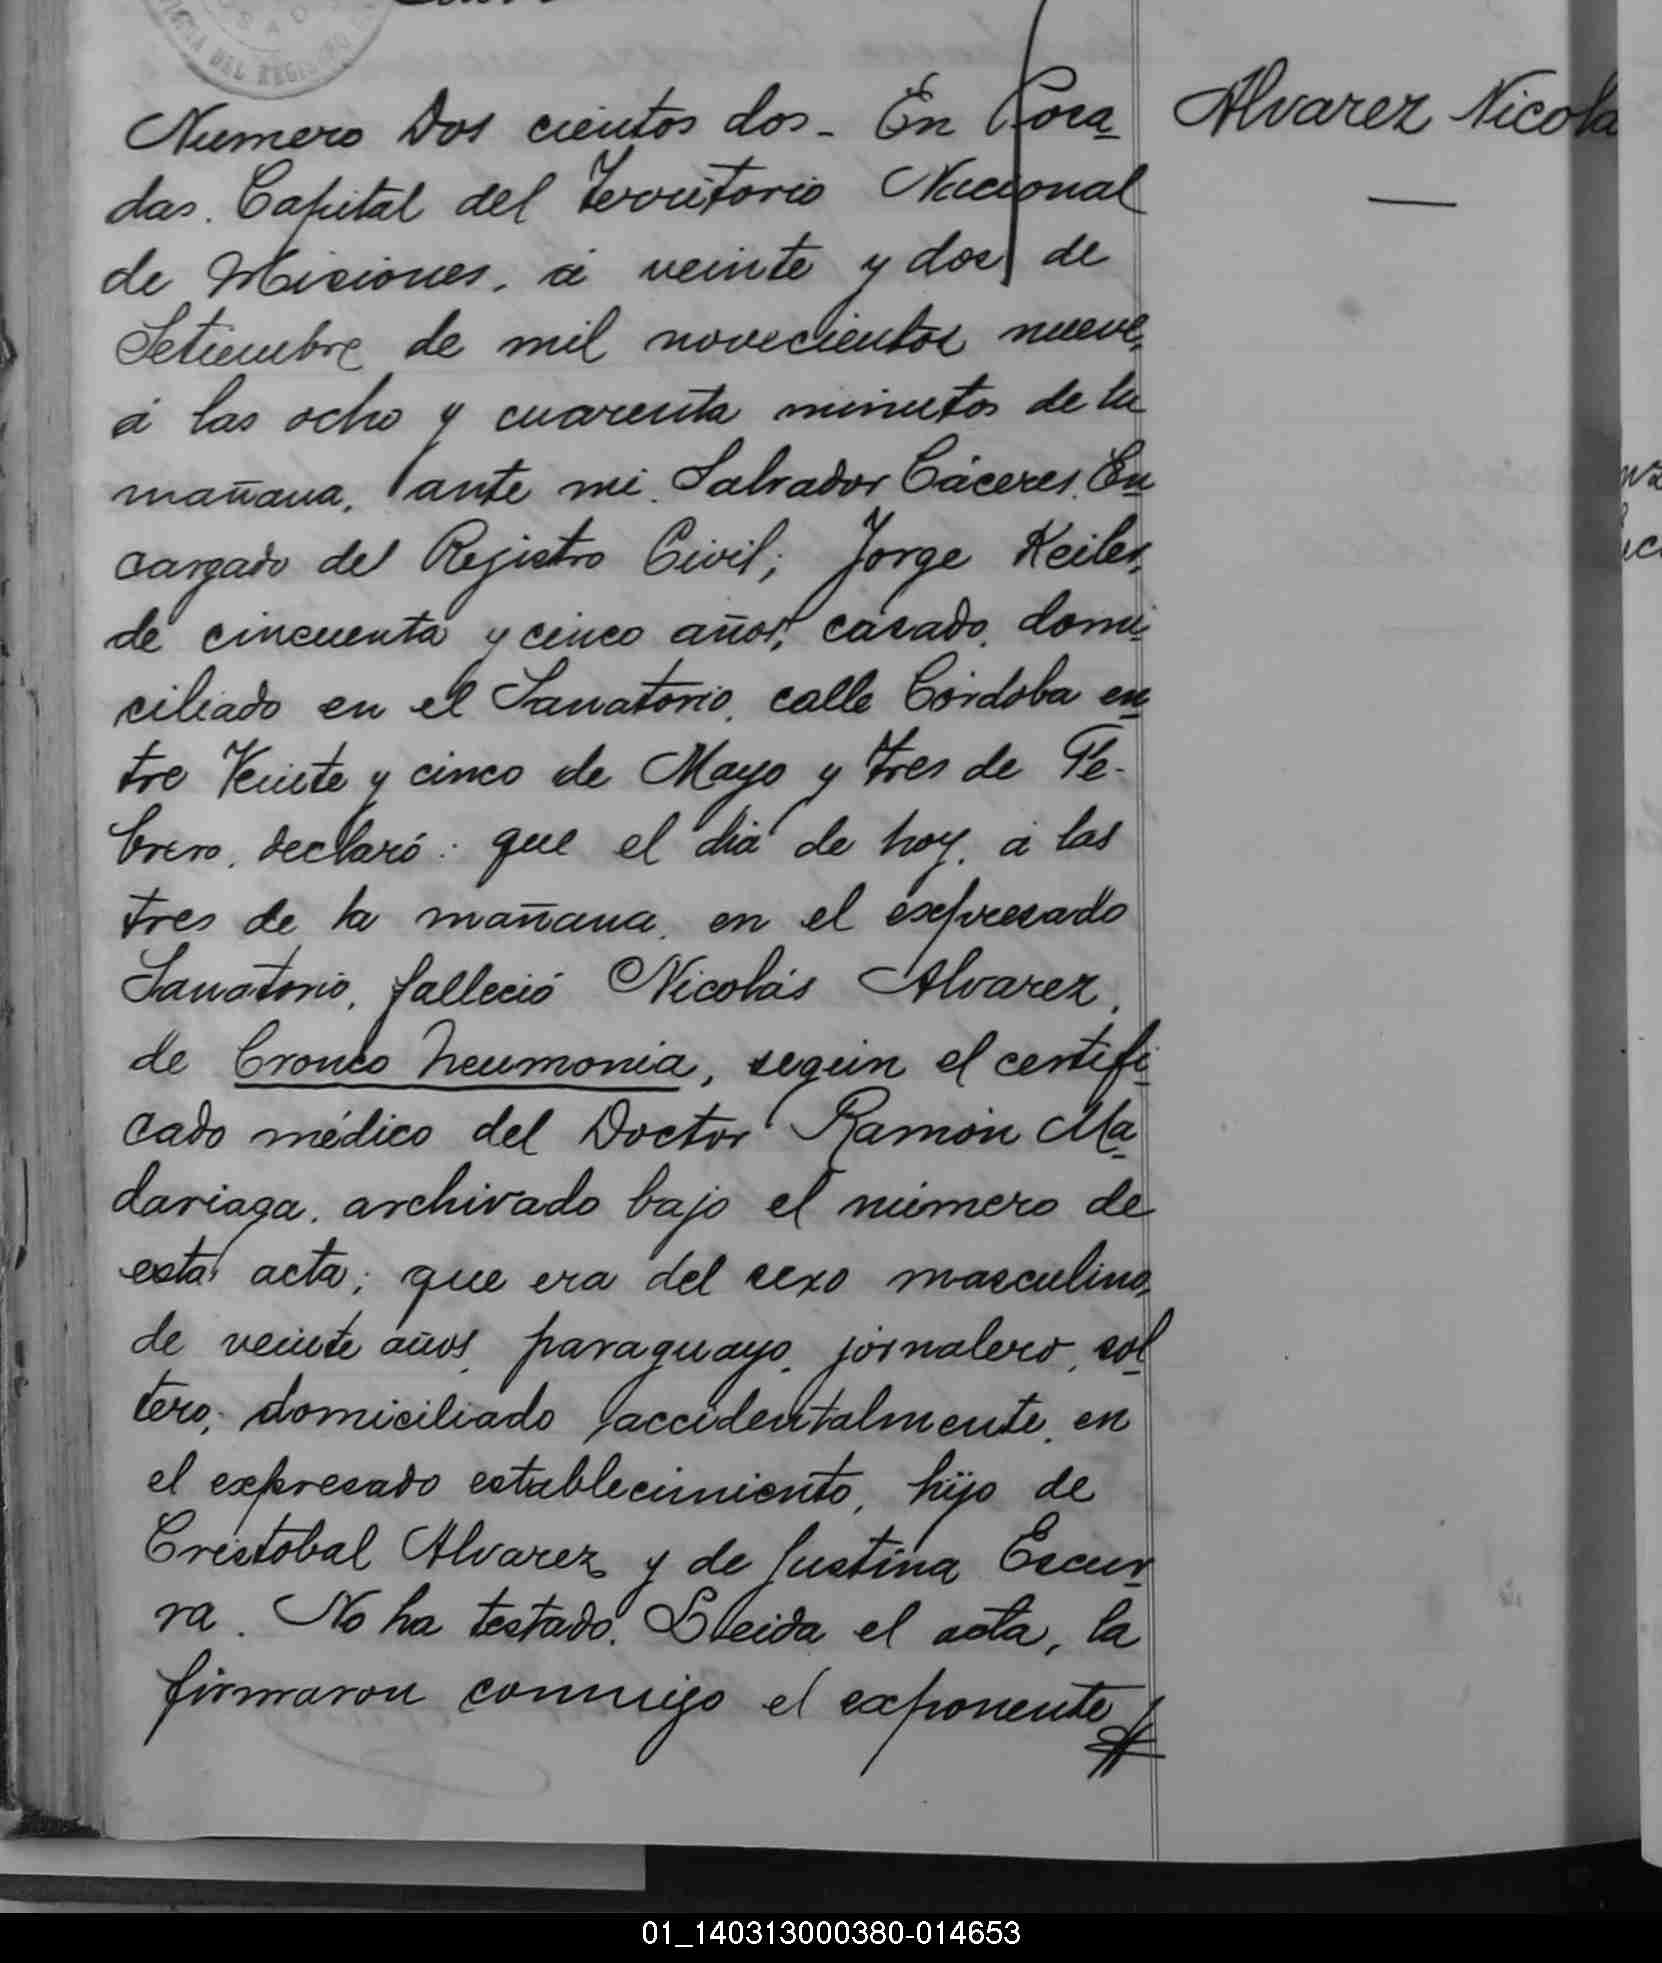 Numero Dos cientos dos - En Posa-
das. Capital del Territorio Nacional
de Misiones, á veinte y dos de
Setiembre de mil novecientos nueve,
á las ocho y cuarenta minutos de la
mañana, ante mi. Salvador Cáceres, En
cargado del Registro Civil; Jorge Keiler,
de cincuenta y cinco años, casado, domi-
ciliado en el Sanatorio, calle Córdoba en
tre Veinte y cinco de Mayo y tres de Fe-
brero, declaró: que el dia de hoy, á las
tres de la mañana, en el expresado
Sanatorio, falleció Nicolás Alvarez,
de Bronco neumonia, según el certifi-
cado médico del Doctor Ramón Ma-
dariaga, archivado bajo el número de
esta acta; que era del sexo masculino,
de veinte años, paraguayo, jornalero, sol
tero, domiciliado accidentalmente, en
el expresado establecimiento, hijo de
Cristobal Alvarez y de Justina Escur-
ra. No ha testado. Leida el acta, la
firmaron conmigo el exponente
Alvarez Nicola
01_140313000380-014653